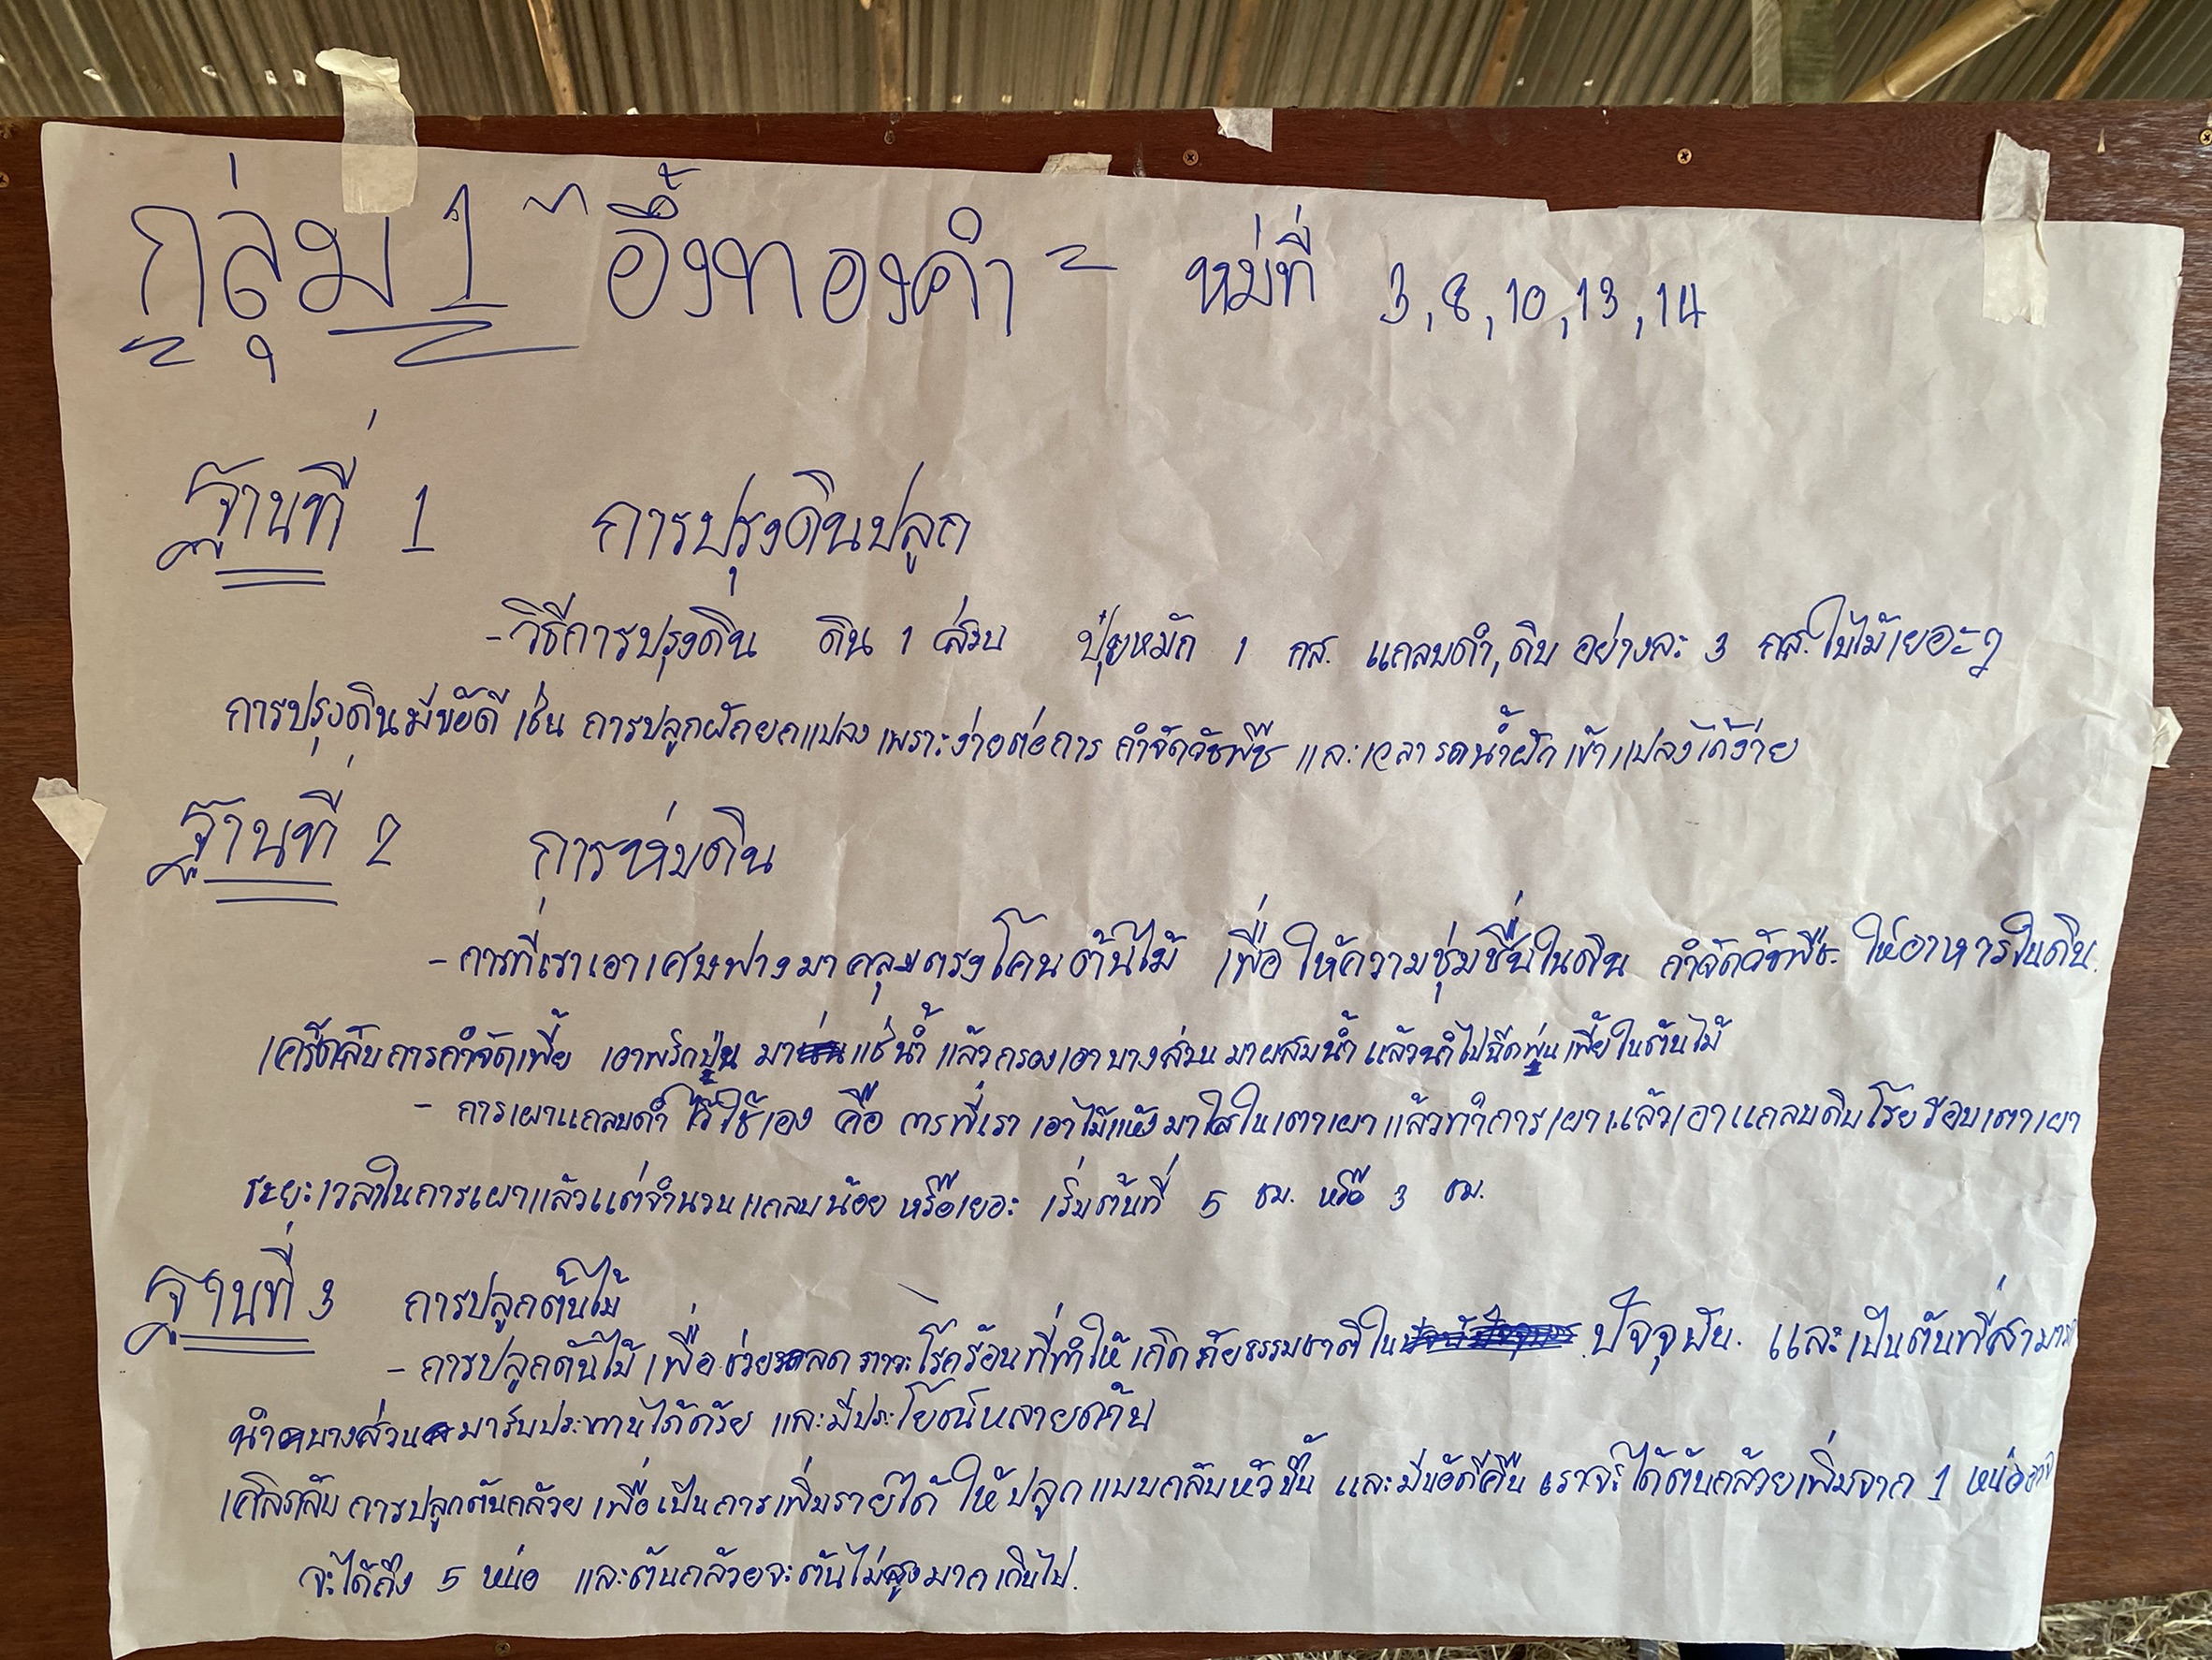 กลุ่ม 1 " อึ้งทองคำ " หมู่ที่ 3,8,10,13,14
ฐานที่ 1 การปรุงดินปลูก
- วิธีการปรุงดิน ดิน 1 ส่วน ปุ๋ยหมัก 1 กส. แกลบดำ,ดิบ อย่างละ 3 กส. ใบไม้เยอะๆ
การปรุงดินมีข้อดี เช่น การปลูกผักยกแปลง เพราะง่ายต่อการ กำจัดวัชพืช และเวลารดน้ำผัก เข้าแปลงได้ง่าย
ฐานที่ 2 การห่มดิน
- การที่เราเอาเศษฟางมาคลุมตรงโคนต้นไม้ เพื่อให้ความชุ่มชื่นในดิน กำจัดวัชพืช ให้อาหารในดิน
เคร็ดลับการกำจัดเพี้ย เอาพริกป่น มาแช่น้ำ แล้วกรองเอาบางส่วนมาผสมน้ำ แล้วนำไปฉีดพุ่นเพี้ยในต้นไม้
- การเผาแกลบดำ ไว้ใช้เอง คือ การที่เรา เอาไม้แห้งมาใส่ในเตาเผา แล้วทำการเผา แล้วเอาแกลบดิบโรยรอบเตาเผา
ระยะเวลาในการเผาแล้วแต่จำนวนแกลบน้อย หรือเยอะ เริ่มต้นที่ 5 ชม. หรือ 3 ชม.
ฐานที่ 3 การปลูกต้นไม้
- การปลูกต้นไม้ เพื่อช่วยลด ภาวะโรคร้อนที่ทำให้เกิดภัยธรรมชาติใน ปัจจุบัน. และเป็นต้นที่สามารถ
นำบางส่วนมารับประทานได้ด้วย และมีประโยชน์หลายด้าน
เคล็ดลับ การปลูกต้นกล้วย เพื่อเป็นการเพิ่มรายได้ ให้ปลูกแบบกลับหัวขึ้น และมีข้อดีคืน เราจะได้ต้นกล้วยเพิ่มจาก 1 หน่อ
จะได้ถึง 5 หน่อ และต้นกล้วยจะต้นไม่สูงมากเกินไป.